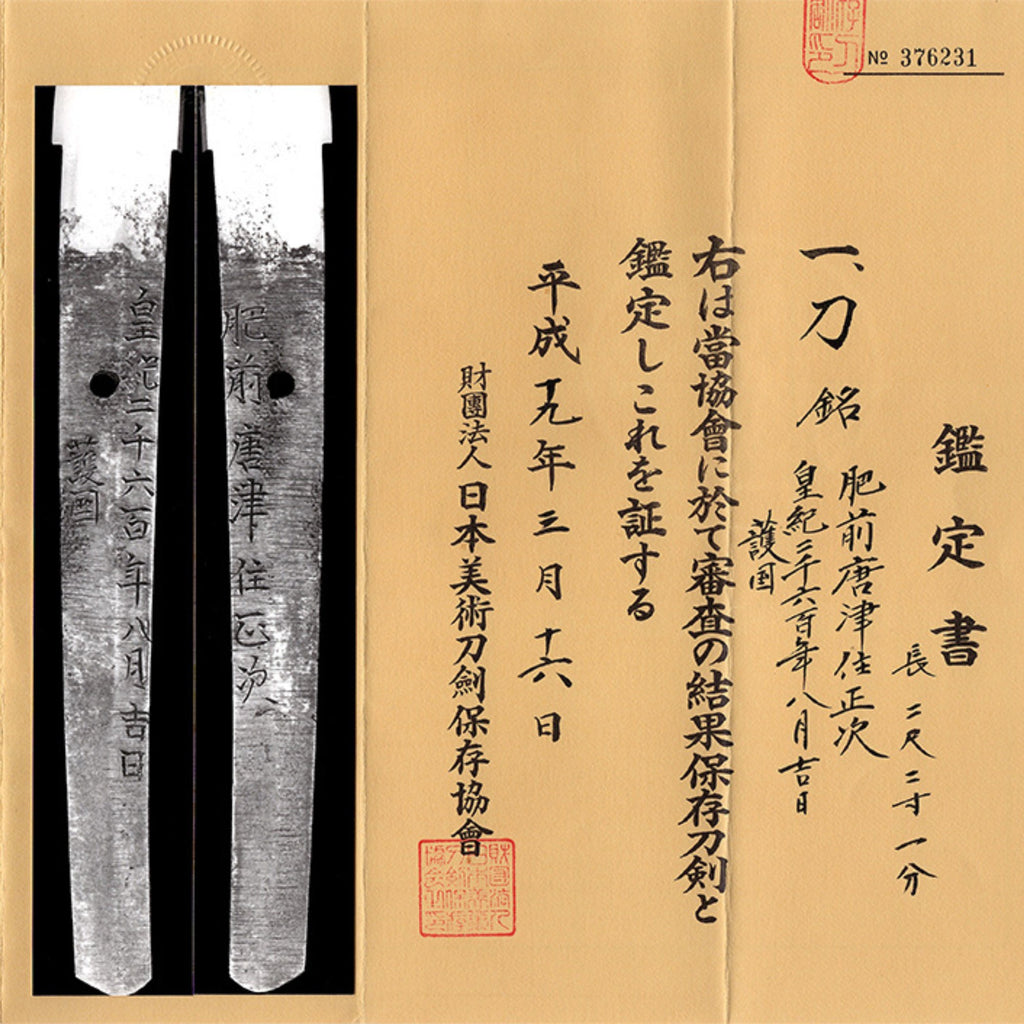 № 376231
鑑定書
長 二尺二寸一分
一、刀 銘
肥前唐津住正次
皇紀二千六百年八月吉日
護国
右は當協會に於て審査の結果保存刀剣と
鑑定しこれを証する
平成十九年三月十六日
財團法人日本美術刀劍保存協會
肥前唐津住正次
皇紀二千六百年八月吉日
護國